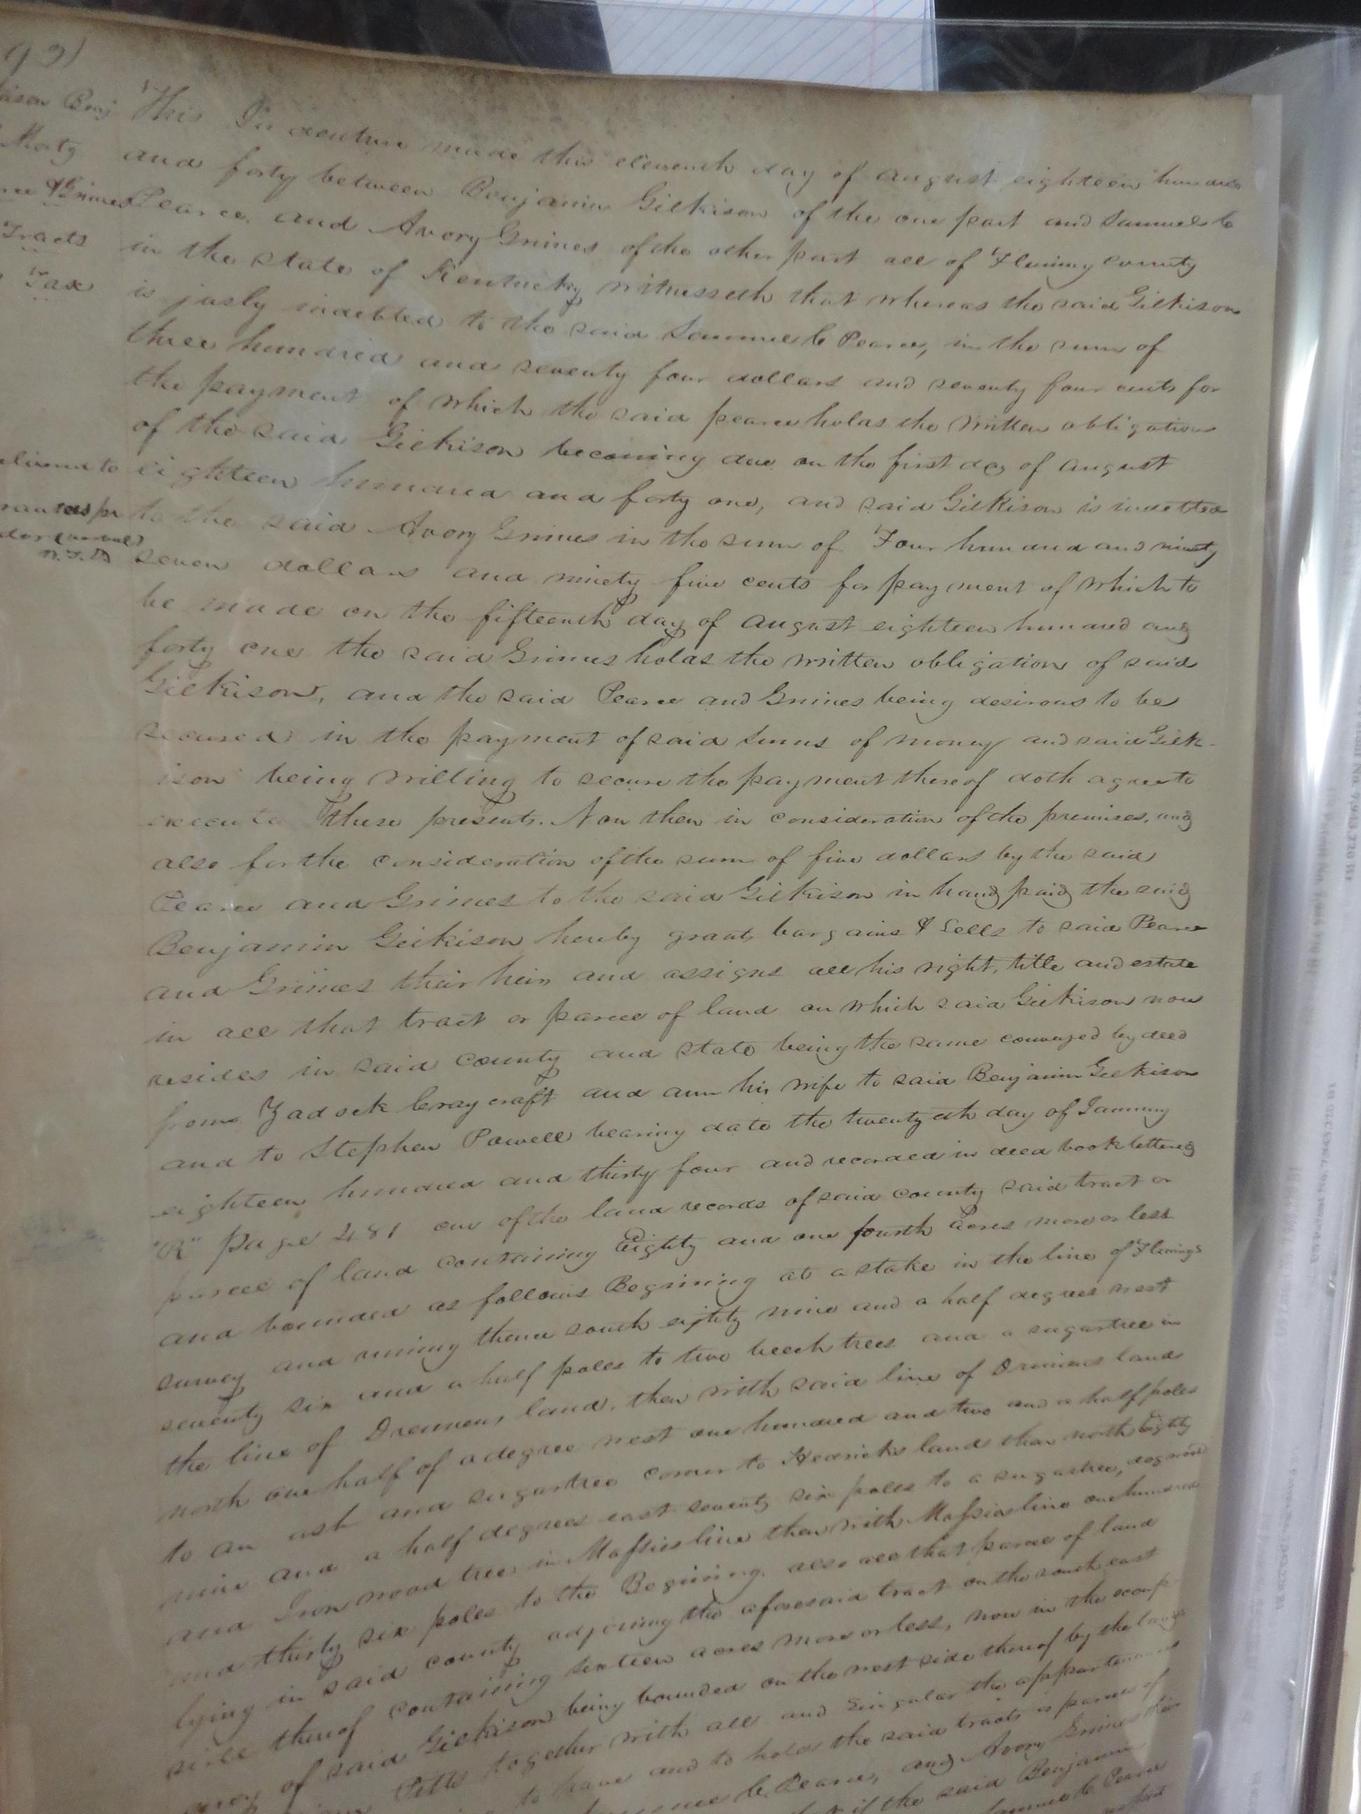 This Indenture made this eleventh day of august eighteen hundred
and forty between Benjamin Gilkison of the one part and Samuel C
Pearce, and Avory Grimes of the other part all of Fleming County
in the state of Kentucky witnesseth that whereas the said Gilkison
is jusly indebted to the said Samuel C Pearce, in the sum of
three hundred and seventy four dollars and seventy four cents for
the payment of which the said pearce holds the written obligation
of the said Gilkison becoming due on the first day of august
eighteen hundred and forty one, and said Gilkison is indetted
to the said Avory Grimes in the sum of Four hundred and ninety
seven dollars and ninety five cents for payment of which to
be made on the fifteenth day of august eighteen hundred and
forty one the said Grimes holds the written obligation of said
Gilkison, and the said Pearce and Grimes being desirous to be
secured in the payment of said sums of money and said Gilk-
ison being willing to secure the payment thereof doth agree to
execute these presents. Now then in consideration of the premises, and
also for the consideration of the sum of five dollars by the said
Pearce and Grimes to the said Gilkison in hand paid the said
Benjamin Gilkison hereby grants bargains & sells to said Pearce
and Grimes their heirs and assigns all his right, title and estate
in all that tract or parcel of land on which said Gilkison now
resides in said county and state being the same conveyed by deed
from Zadock Craycraft and ann his wife to said Benjamin Gilkison
and to Stephen Powell bearing date the twentyeth day of January
eighteen hundred and thirty four and recorded in deed book lettered
"R" page 481 one of the land records of said county said tract or
parcel of land containing Eighty and one fourth acres more or less
and bounded as follows Begining at a stake in the line of Flemings
survey and runing thence south eighty nine and a half degrees west
seventy six and a half poles to two beech trees and a sugartree in
the line of Drennens land, then with said line of Drennens land
north one half of a degree west one hundred and two and a half poles
to an ash and sugartree corner to Hedricks land then north Eighty
nine and a half degrees east seventy six poles to a sugartree, dogwood
and Ironwood tree in Massies line then with Massies line one hundred
and thirty six poles to the Begining, also all that parcel of land
lying in said county adjoining the aforesaid tract on the south east
side thereof containing sixteen acres more or less, now in the occup-
ancy of said Gilkison being bounded on the west side thereof by the
together with all and singular the appurtenances
to have and to hold the said tracts or parcels of
Pearce, and Avory Grimes their
if the said Benjamin
Pearce
Tracts
Tax